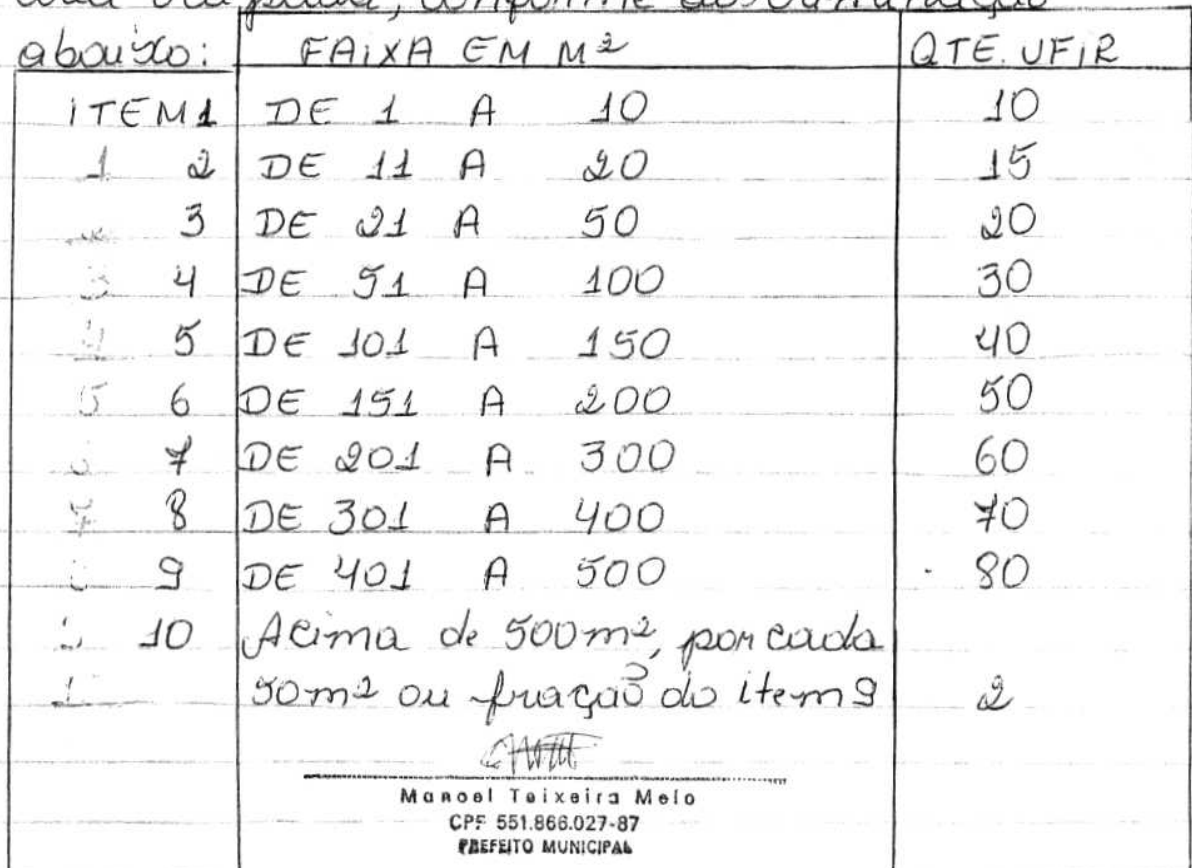 conforme discriminação
abaixo: FAIXA EM M² QTE. UFIR
ITEM 1 DE 1 A 10 10
2 DE 11 A 20 15
3 DE 21 A 50 20
4 DE 51 A 100 30
5 DE 101 A 150 40
6 DE 151 A 200 50
7 DE 201 A 300 60
8 DE 301 A 400 70
9 DE 401 A 500 80
10 Acima de 500m², por cada
50m² ou fração do item 9 2
Manoel Teixeira Melo
CPF 551.866.027-87
PREFEITO MUNICIPAL